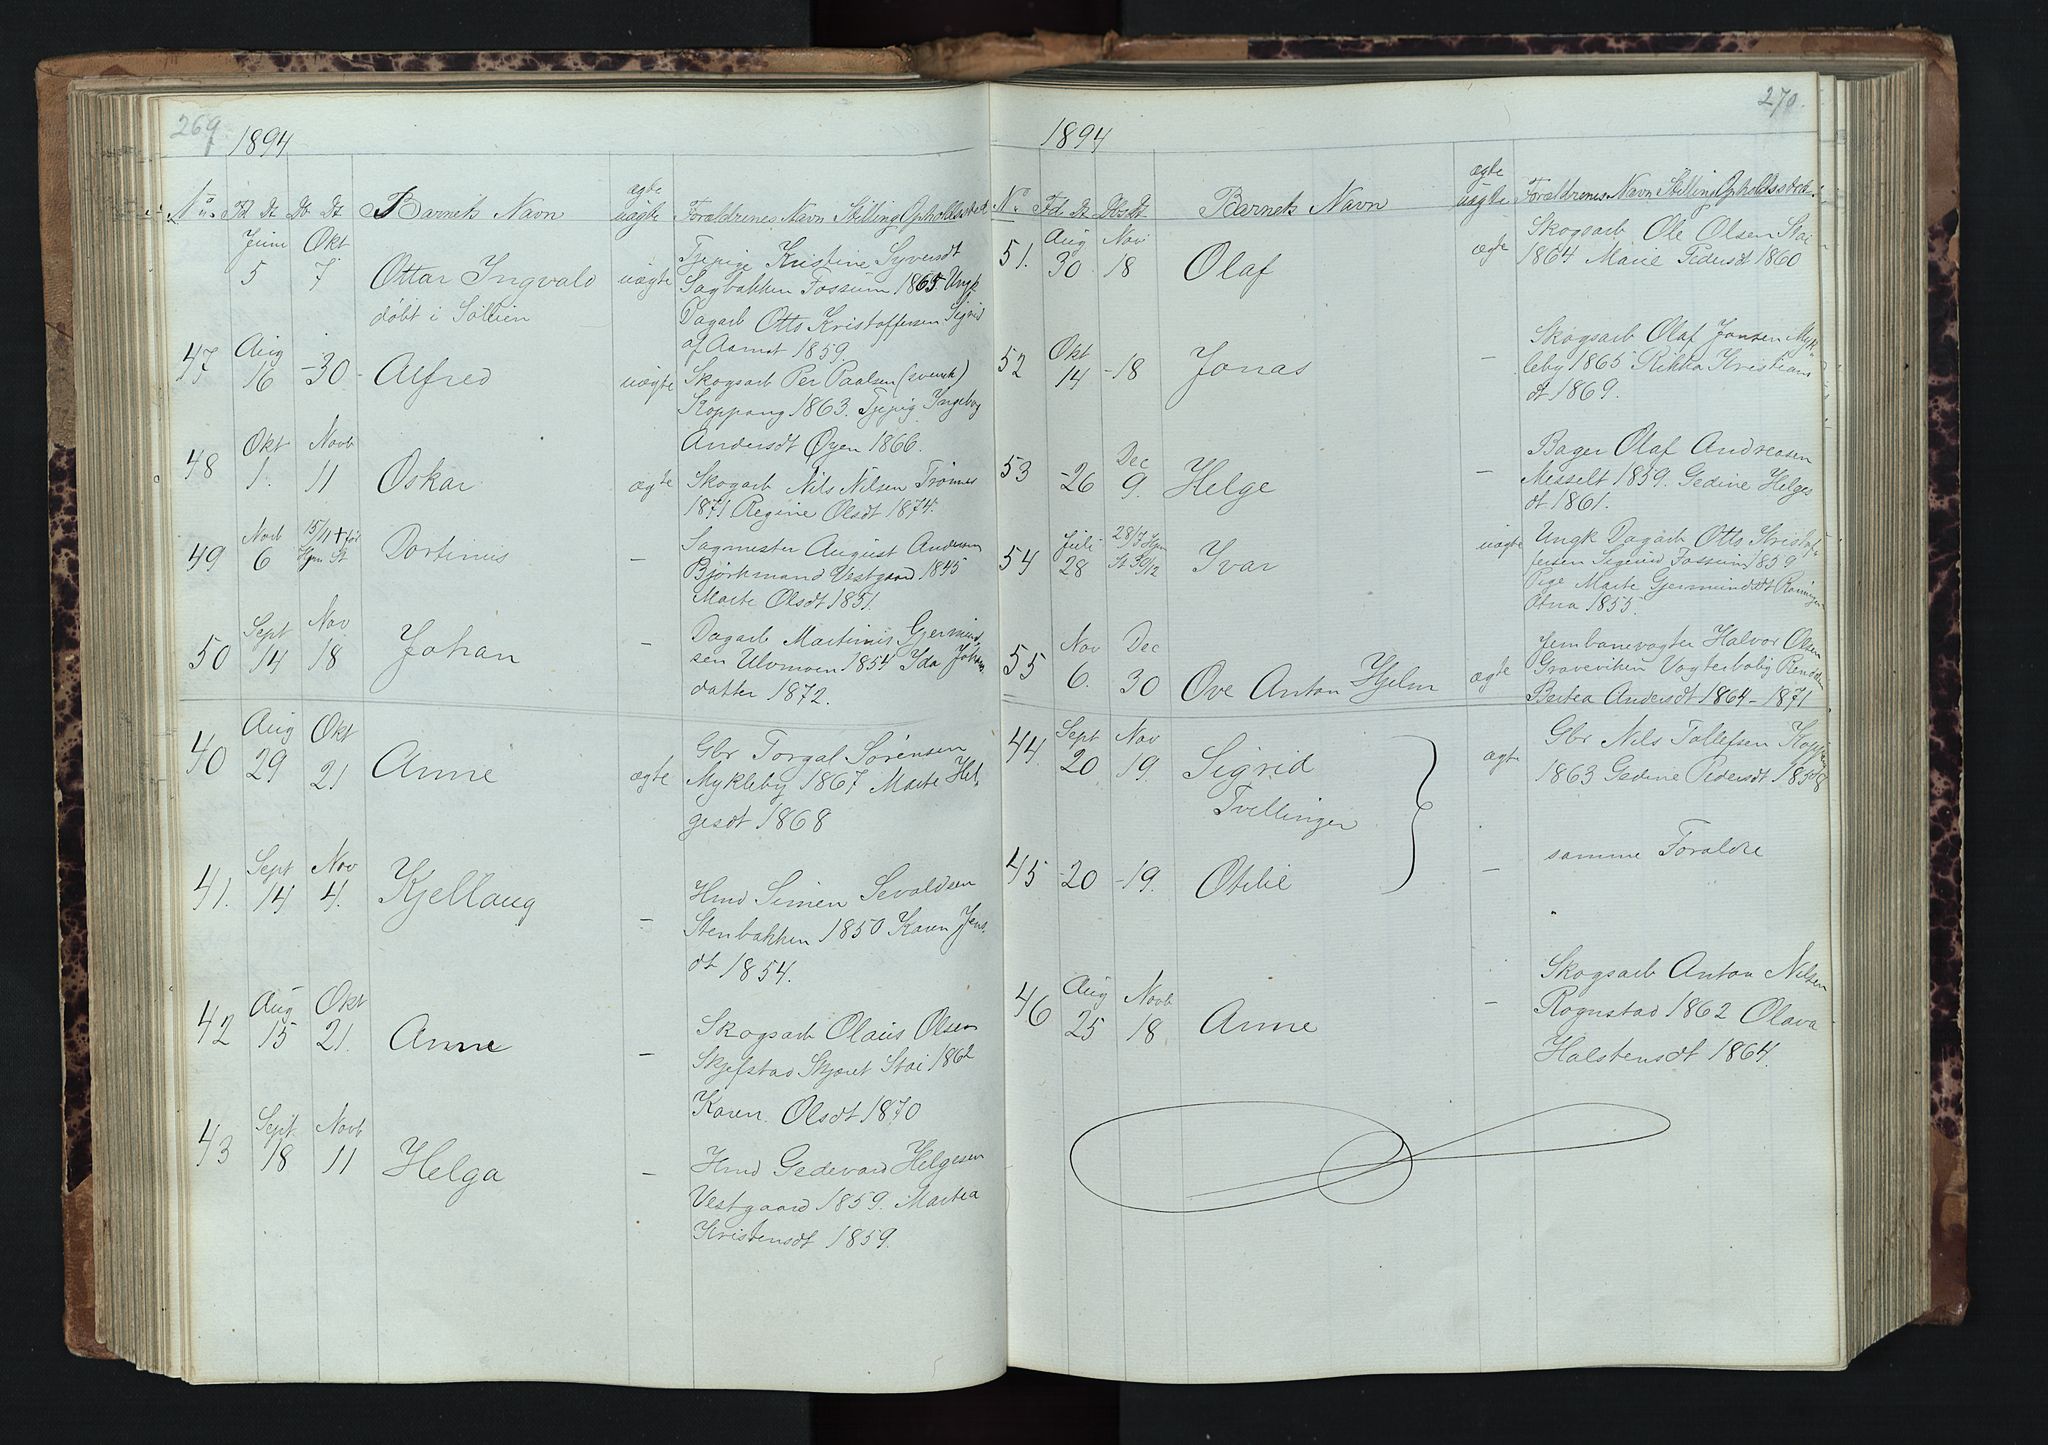 269
1894
No. Fd Dt Db Dt Barnets Navn ægte uægte Forældrenes Navn Stilling Opholdssted
Juni 5 Okt 7 Ottar Ingvald uægte Tjpige Kristine Syversdt
døbt i Sollien Sagbakken Fossum 1865. Ungk
Dagarb Otto Kristoffersen Sigrid
af Aamot 1859.
47 Aug 16 - 30 - Alfred uægte Skogsarb Per Paalsen (svensk)
Koppang 1863. Tjpig Ingeborg
Andersdt Øyen 1866.
48 Okt 1. Novb 11 Oskar ægte Skogarb Nils Nilsen Trønnes
1871 Regine Olsdt 1874.
49 Novb 6 15/11 + før Hjm St Dortinius - Sagmester August Andersen
Bjørkmand Vestgaard 1845
Marte Olsdt 1851.
50 Sept 14 Nov 18 Johan - Dagarb Martinis Gjermund
sen Ulvmoen 1854 Ida Johans
datter 1872.
40 Aug 29 Okt 21 Anne ægte Gbr Torgal Sørensen
Mykleby 1867 Marte Hel-
gesdt 1868
41. Sept 14 Nov 4. Kjellaug - Hmd Simen Sevaldsen
Stenbakken 1850 Karen Jens
dt 1854.
42 Aug 15 Okt 21. Anne - Skogsarb Olaus Olsen
Skjefstad Skjæret Stai 1862
Karen Olsdt 1870
43 Sept 18 Novb 11 Helga - Hmd Gedevard Helgesen
Vestgaard 1859. Martea
Kristensdt 1859.
270.
1894
No. Fd Dt Dbs Dt Barnets Navn ægte uægte Forældrenes Navn Stilling Opholdssted
51. Aug 30 Nov 18 Olaf ægte Skogsarb Ole Olsen Stai
1864 Marie Pedersdt 1860
52 Okt 14 - 18 Jonas - Skogsarb Olaf Jonsen Myk
leby 1865 Rikka Kristians
dt 1869.
53 - 26 Dec 9. Helge - Bager Olaf Andreasen
Messelt 1859. Gedine Helges
dt 1861.
54 Juli 28 28/7 Hjm St 30/12 Ivar uægte Ungk Dagarb Otto Kristof
fersen Sigrid Fossum 1859
Pige Marte Gjermundsdt Rønningen
Atna 1855.
55 Nov 6. Dec 30 Ove Anton Hjelm ægte Jernbanevagter Halvor Olsen
Graveviken Vagterbolig Rendalen
Bertea Andersdt 1864 - 1871
44. Sept 20 Nov 19. Sigrid ægte Gbr Nils Tollefsen Koppang
1863 Gedine Pedersdt 1858
Tvillinger
45 - 20 - 19. Otelie - samme Foraldre
46 Aug 25 Novb 18 Anne - Skogsarb Anton Nilsen
Rognstad 1862 Olava
Halstensdt 1864.